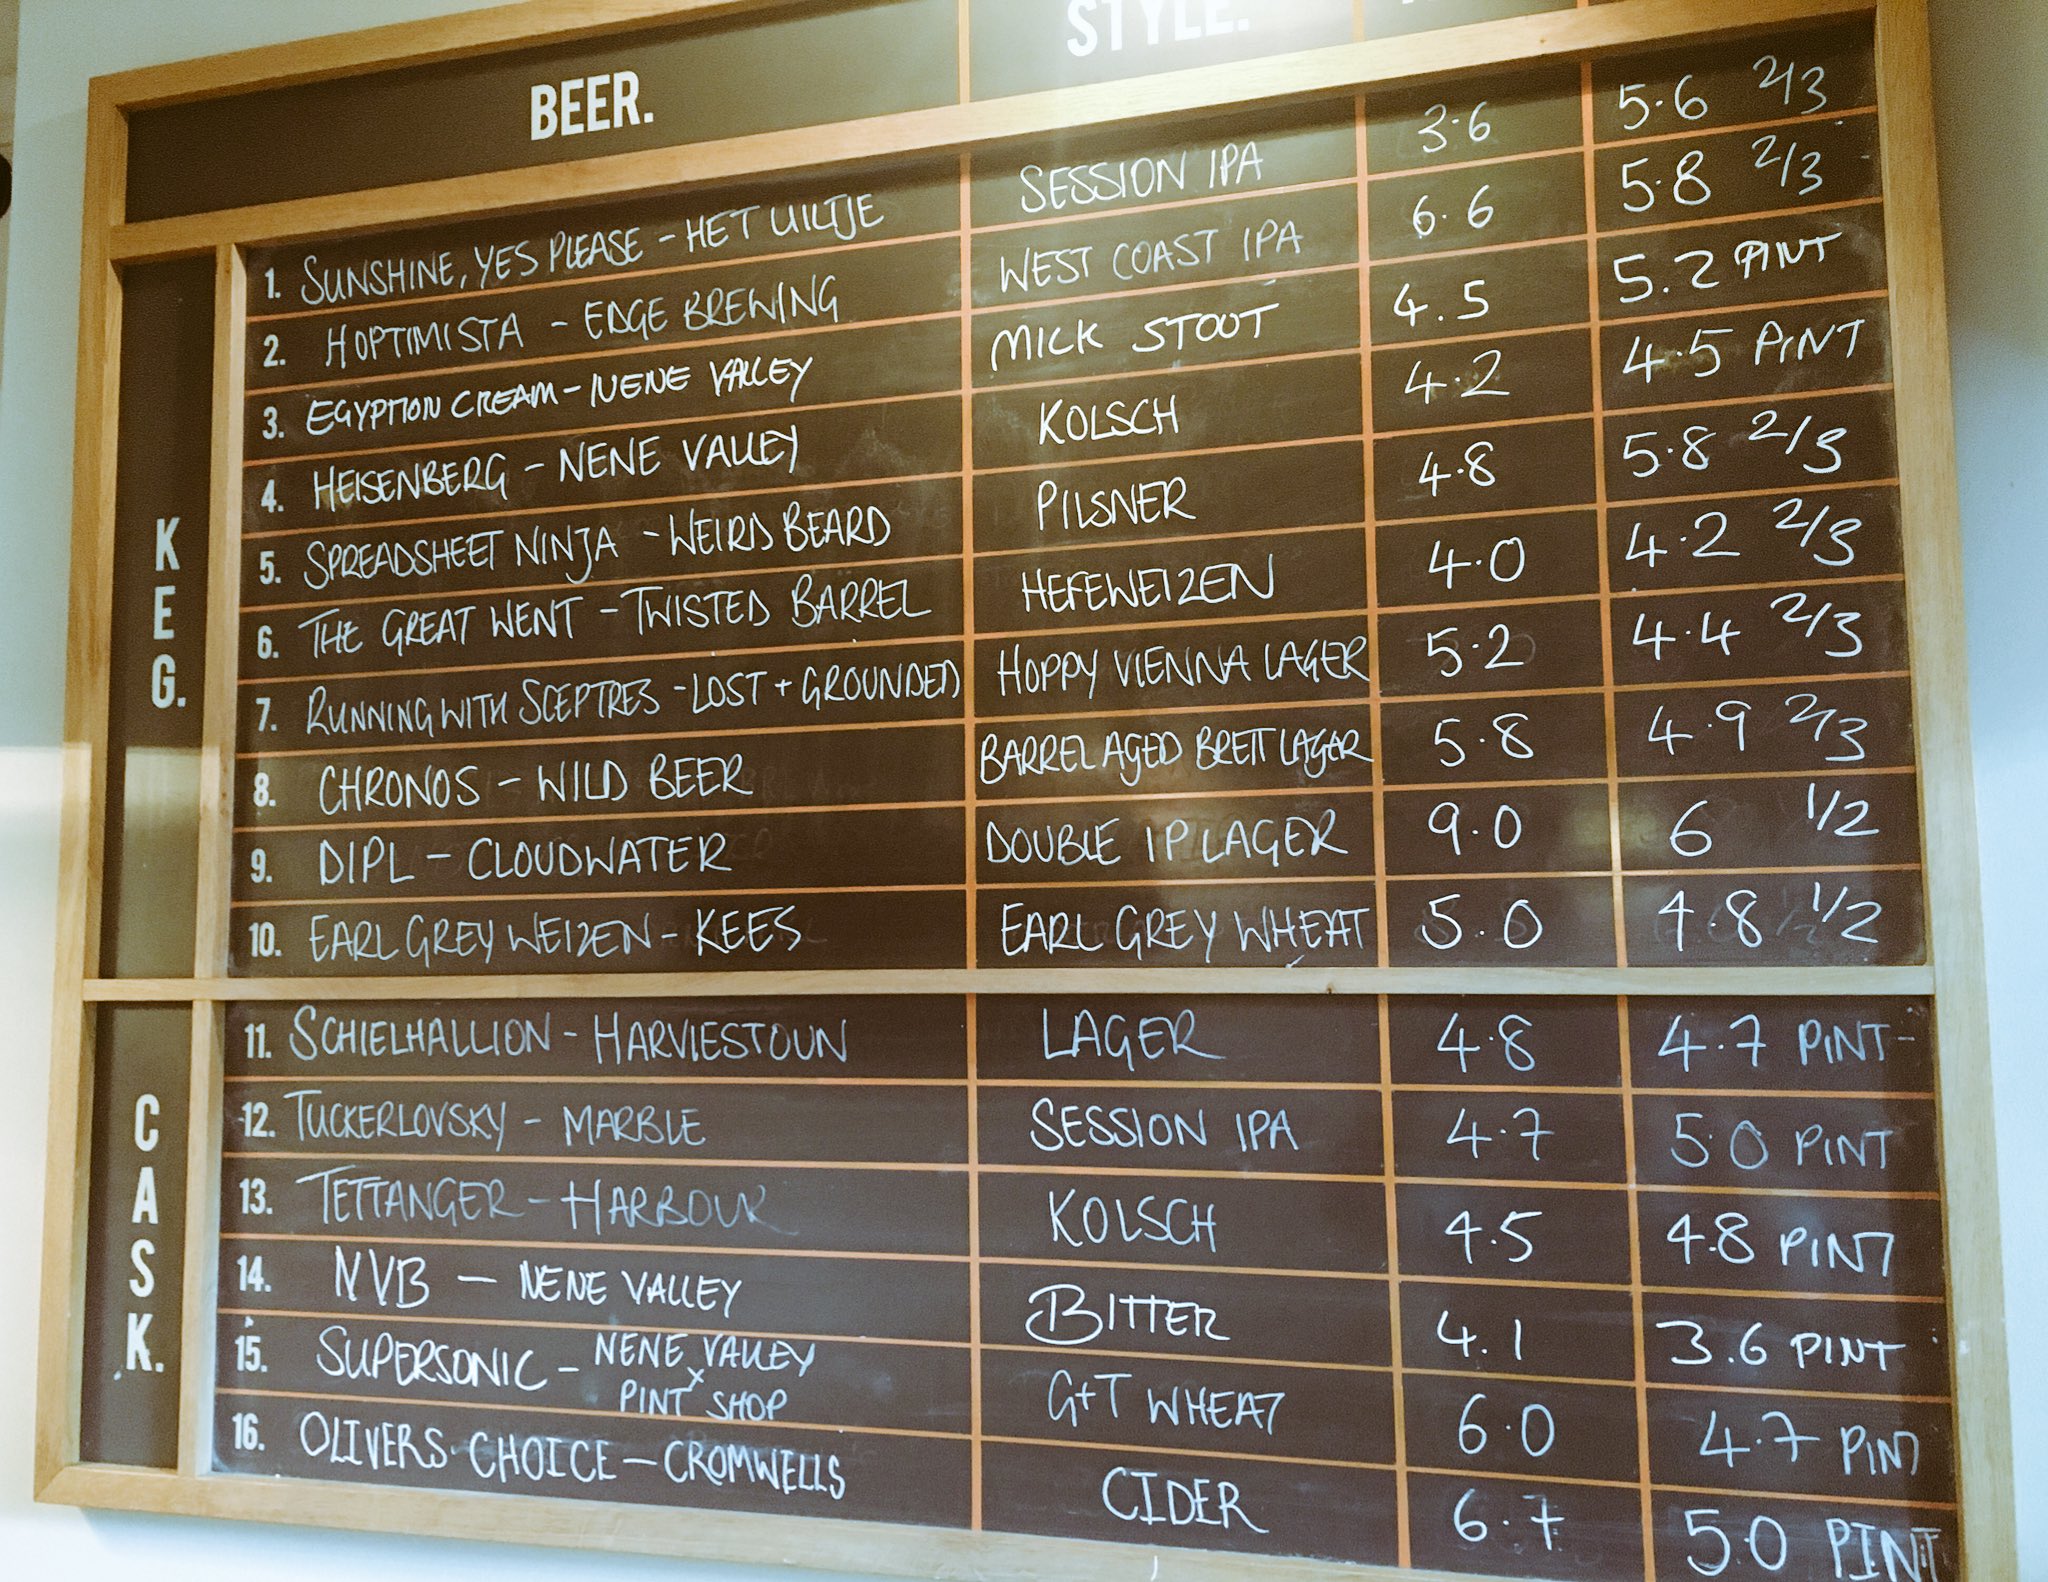 BEER. STYLE.
KEG.
1. SUNSHINE, YES PLEASE - HET UILTJE SESSION IPA 3.6 5.6 2/3
2. HOPTIMISTA - EDGE BREWING WEST COAST IPA 6.6 5.8 2/3
3. EGYPTION CREAM - NENE VALLEY MILK STOUT 4.5 5.2 PINT
4. HEISENBERG - NENE VALLEY KOLSCH 4.2 4.5 PINT
5. SPREADSHEET NINJA - WEIRD BEARD PILSNER 4.8 5.8 2/3
6. THE GREAT WENT - TWISTED BARREL HEFEWEIZEN 4.0 4.2 2/3
7. RUNNING WITH SCEPTRES - LOST + GROUNDED HOPPY VIENNA LAGER 5.2 4.4 2/3
8. CHRONOS - WILD BEER BARREL AGED BRETT LAGER 5.8 4.9 2/3
9. DIPL - CLOUDWATER DOUBLE IP LAGER 9.0 6 1/2
10. EARL GREY WEIZEN - KEES EARL GREY WHEAT 5.0 4.8 1/2
CASK.
11. SCHIELHALLION - HARVIESTOUN LAGER 4.8 4.7 PINT
12. TUCKERLOVSKY - MARBLE SESSION IPA 4.7 5.0 PINT
13. TETTANGER - HARBOUR KOLSCH 4.5 4.8 PINT
14. NVB - NENE VALLEY BITTER 4.1 3.6 PINT
15. SUPERSONIC - NENE VALLEY x PINT SHOP G+T WHEAT 6.0 4.7 PINT
16. OLIVERS CHOICE - CROMWELLS CIDER 6.7 5.0 PINT